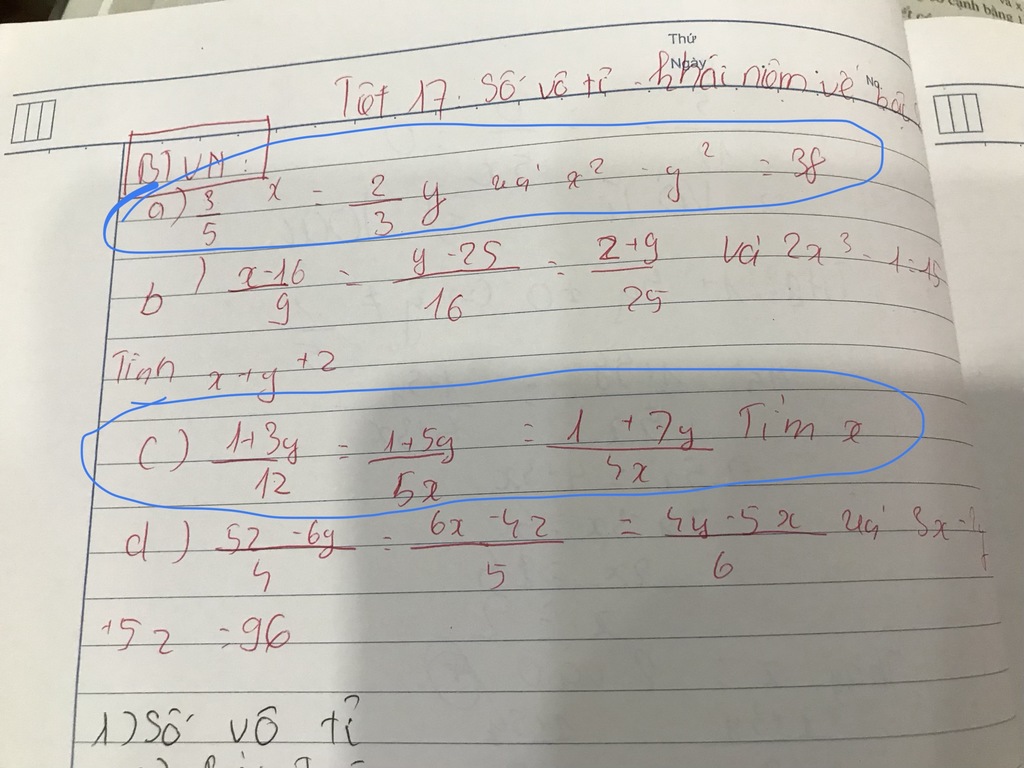 Thứ
Ngày
Tiết 17. Số vô tỉ - khái niệm về
BTVN:
a) 3/5 x = 2/3 y và x² - y² = 38
b) x-16/9 = y-25/16 = z+9/25 và 2x³ - 1 = 15
Tính x+y+z
c) 1+3y/12 = 1+5y/5x = 1+7y/4x Tìm x
d) 5z-6y/4 = 6x-4z/5 = 4y-5x/6 và 3x-2y
+5z = 96
1) Số vô tỉ